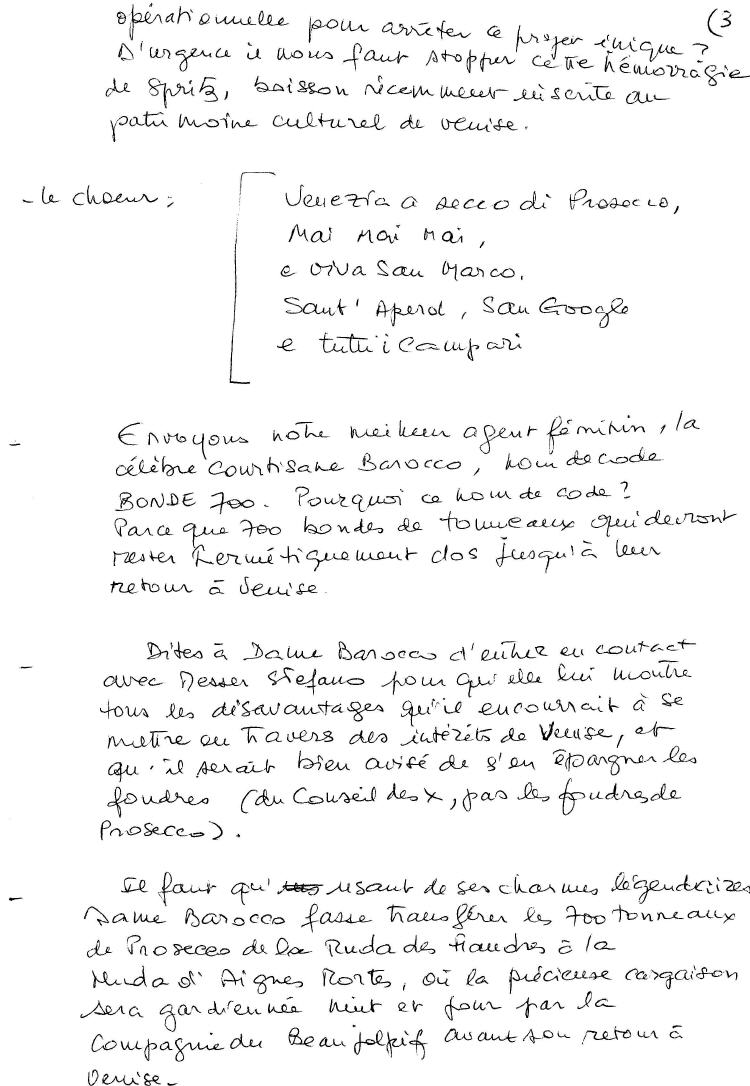 (3
opérationnelle pour arrêter ce projet inique ?
D'urgence il nous faut stopper cette hémorragie
de Spritz, boisson récemment inscrite au
patrimoine culturel de Venise.
- le choeur :
Venezia a secco di Prosecco,
Mai Mai Mai,
e viva San Marco.
Sant' Aperol, San Google
e tutti i Campari
- Envoyons notre meilleur agent féminin, la
célèbre courtisane Barocco, nom de code
BONDE 700. Pourquoi ce nom de code ?
Parce que 700 bondes de tonneaux qui devront
rester hermétiquement clos jusqu'à leur
retour à Venise.
- Dites à Dame Barocco d'entrer en contact
avec Messer Stefano pour qu'elle lui montre
tous les désavantages qu'il encourrait à se
mettre en travers des intérêts de Venise, et
qu'il serait bien avisé de s'en épargner les
foudres (du Conseil des X, pas les foudres de
Prosecco).
- Il faut qu' usant de ses charmes légendaires
Dame Barocco fasse transférer les 700 tonneaux
de Prosecco de la Muda des Flandres à la
Muda d' Aigues Mortes, où la précieuse cargaison
sera gardiennée nuit et jour par la
Compagnie du Beaujolpif avant son retour à
Venise -